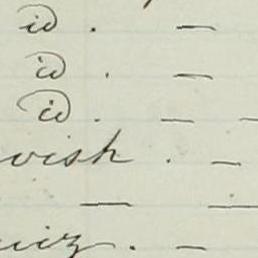 id . —
id . —
id . — —
wish . —
— —
uiz . —